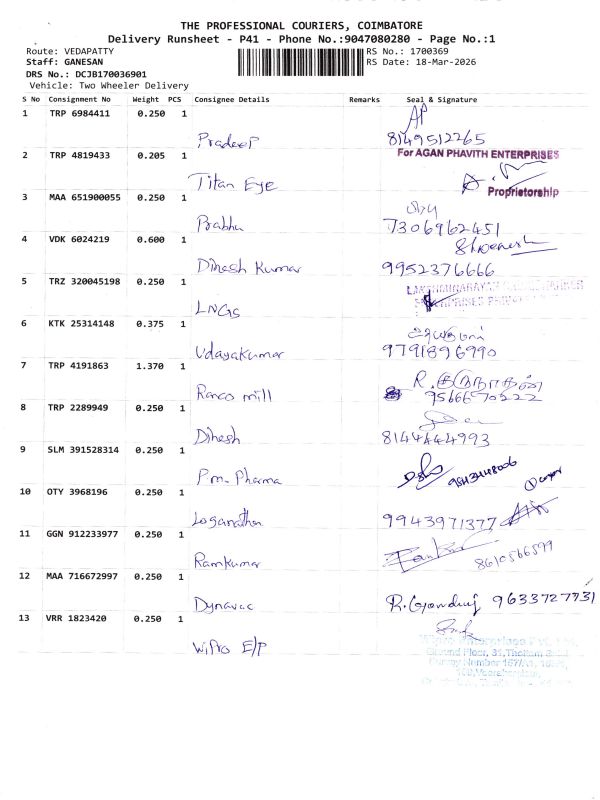 THE PROFESSIONAL COURIERS, COIMBATORE
Delivery Runsheet - P41 - Phone No.:9047080280 - Page No.:1
Route: VEDAPATTY
RS No.: 1700369
Staff: GANESAN
RS Date: 18-Mar-2026
DRS No.: DCJB170036901
Vehicle: Two Wheeler Delivery
S No Consignment No Weight PCS Consignee Details Remarks Seal & Signature
1 TRP 6984411 0.250 1
Pradeep 8149512265
2 TRP 4819433 0.205 1 For AGAN PHAVITH ENTERPRISES
Titan Eye Proprietorship
3 MAA 651900055 0.250 1
Prabhu 7306962451
4 VDK 6024219 0.600 1
Dinesh Kumar 9952376666
5 TRZ 320045198 0.250 1
LNGS
6 KTK 25314148 0.375 1
Udayakumar 9791896990
7 TRP 4191863 1.370 1
Ranco mill 9566670222
8 TRP 2289949 0.250 1
Dinesh 8144444993
9 SLM 391528314 0.250 1
Pm. Pharma
10 OTY 3968196 0.250 1
Loganathan 9943971377
11 GGN 912233977 0.250 1
Ramkumar 8610566599
12 MAA 716672997 0.250 1
Dynavac 9633727731
13 VRR 1823420 0.250 1
Wipro E/P